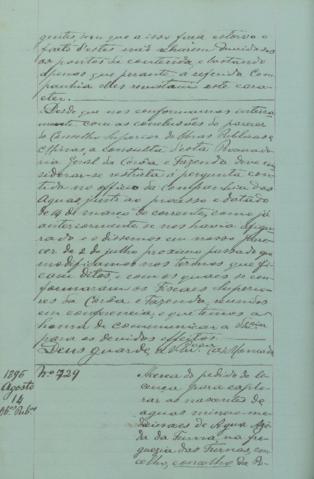 guntes, sem que a isso faça estorvo o
facto d'estes não serem
os pontos de contenda, e bastando
apenas que perante a referida Com-
panhia elles revistam este cara-
cter.
Desde que nos conformamos inteira-
mente com as conclusões do parecer
do Conselho Superior de Obras Publicas
e Minas, a consulta d'esta Procurado-
ria Geral da Corôa e Fazenda deve con-
siderar-se restricta á pergunta con-
tida no officio da Companhia das
Aguas, junto ao processo e datado
de 14 de março do corrente, como já
anteriormente se nos havia afigu-
rado e o dissemos em nosso pare-
cer de 2 de julho proximo passado que
modificamos nos termos que fi-
cam ditos, e com os quaes se con-
formaram os Fiscaes Superio-
res da Corôa e Fazenda, reunidos
em conferencia, e que temos a
honra de communicar a
para os devidos effeitos.
Deus guarde
1896
Agosto
14
Ob.as Pub.cas
Nº 729
Ácerca do pedido de li-
cença para explo-
rar as nascentes de
aguas minero-me-
dicinaes de Agua Aze-
da da Furna, na fre-
guezia das Furnas, con-
celho, concelho da Po-